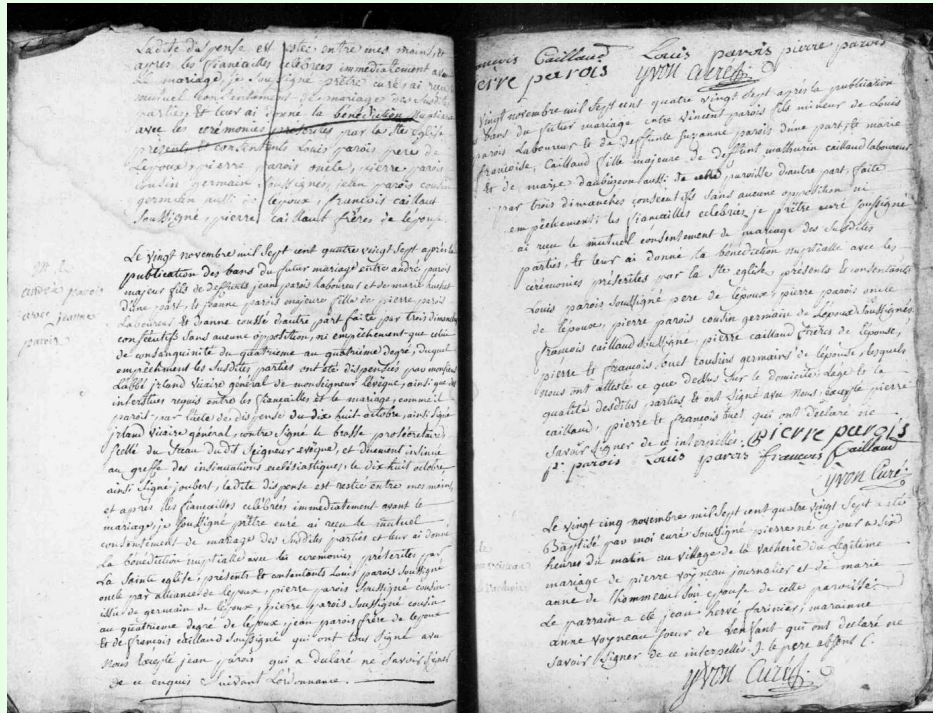 Ladite dispense est restée entre mes mains, et
après les fiancailles célébrées immédiatement avant
le mariage, je soussigné prêtre curé, ai recu le
mutuel consentement de mariage des susdites
parties, et leur ai donné la bénédiction nuptiale
avec les cérémonies préscrites par la Ste église
présents et consentants Louis parois peres de
l'époux, pierre parois oncle, pierre parois
cousin germain soussignés, jean parois cousin
germain aussi de l'époux, francois caillaut
soussigné, pierre caillaut frères de l'epouse
Le vingt novembre mil sept cent quatre vingt sept après la
publication des bans du futur mariage entre andré parois
majeur fils de deffunts jean parois laboureur et de marie
d'une part, et jeanne parois majeure fille de pierre parois
laboureur et d'anne cousse d'autre part faite par trois dimanches
consécutifs sans aucune opposition, ni empêchement que celui
de consanguinité du quatrième au quatrième degré, duquel
empêchement les susdites parties ont été dispensées par monsieur
l'abbé jrland vicaire général de monseigneur l'evêque, ainsi que des
interstices requis entre les fiancailles et le mariage, comme il
paroit par l'acte de dispense du dix huit octobre, ainsi signé
jrland vicaire général, contre signé le brasse prosécretaire,
scellé du sceau dudit seigneur evêque, et duement insinué
au greffe des insinuations ecclésiastiques, le dix huit octobre
ainsi signé joubert, ladite dispense est restée entre mes mains,
et après les fiancailles célébrées immédiatement avant le
mariage, je soussigné prêtre curé ai recu le mutuel
consentement de mariage des susdites parties et leur ai donné
la bénédiction nuptialle avec les ceremonies préscrites par
la sainte eglise, présents et contentants Louis parois soussigné
oncle par alliance de l'époux, pierre parois soussigné cousin
issu de germain de l'epoux, pierre parois soussigné cousin
au quatrieme degré de l'epoux jean parois frère de l'epoux
et de françois caillaud soussigné qui ont tous signé avec
nous excepté jean parois qui a declaré ne savoir signer
de ce enquis suivant l'ordonnance.
M. de
andré parois
avec jeanne
parois
Caillaud Louis parois pierre parois
pierre parois yvon curé
vingt novembre mil sept cent quatre vingt sept après la publication
des bans du futur mariage entre vincent parois fils mineur de Louis
parois laboureur et de deffunte suzanne parois d'une part, et marie
françoise, caillaud fille majeure de deffunt mathurin caillaud laboureur
et de marie daubigeon aussi de cette paroisse d'autre part, faite
par trois dimanches consecutifs sans aucune opposition ni
empêchement; les fiancailles célébrées, je prêtre curé soussigné
ai recu le mutuel consentement de mariage des susdites
parties, et leur ai donné la bénédiction nuptialle avec les
cérémonies préscrites par la Ste eglise, présents et consentants
Louis parois soussigné pere de l'époux, pierre parois oncle
de l'époux, pierre parois cousin germain de l'epoux soussignés
françois caillaud soussigné, pierre caillaud frères de l'épouse,
pierre et françois cousins germains de l'épouse, lesquels
nous ont attesté ce que dessus sur le domicile, l'age et la
qualité desdites parties et ont signé avec nous, excepté pierre
caillaud, pierre et françois qui ont déclaré ne
savoir signer de ce interpellés. pierre parois
pe parois Louis parois françois Caillaud
yvon Curé
Le vingt cinq novembre mil sept cent quatre vingt sept a été
Baptisé par moi curé soussigné pierre né ce jour a six
heures du matin au village de la vacherie du légitime
mariage de pierre voyneau journalier et de marie
anne de l'hommeau son epouse de cette paroisse.
Le parrain a été jean hervé farinier; maraine
anne voyneau soeur de l'enfant qui ont declaré ne
savoir signer de ce interpellés. le pere absent
yvon Curé